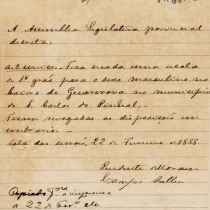 A Assemblea Legislativa provincial
decreta:
Art. unico: Fica creada uma escola
de 1º grao para o sexo masculino no
Bairro de no municipio
de S. Carlos do Pinhal.
revogadas as disposições em
contrario.
Sala das 22 de Fevereiro de 1888.
Prudente de Moraes
Campos Salles
a 22 de